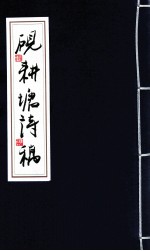 硯耕塘詩稿